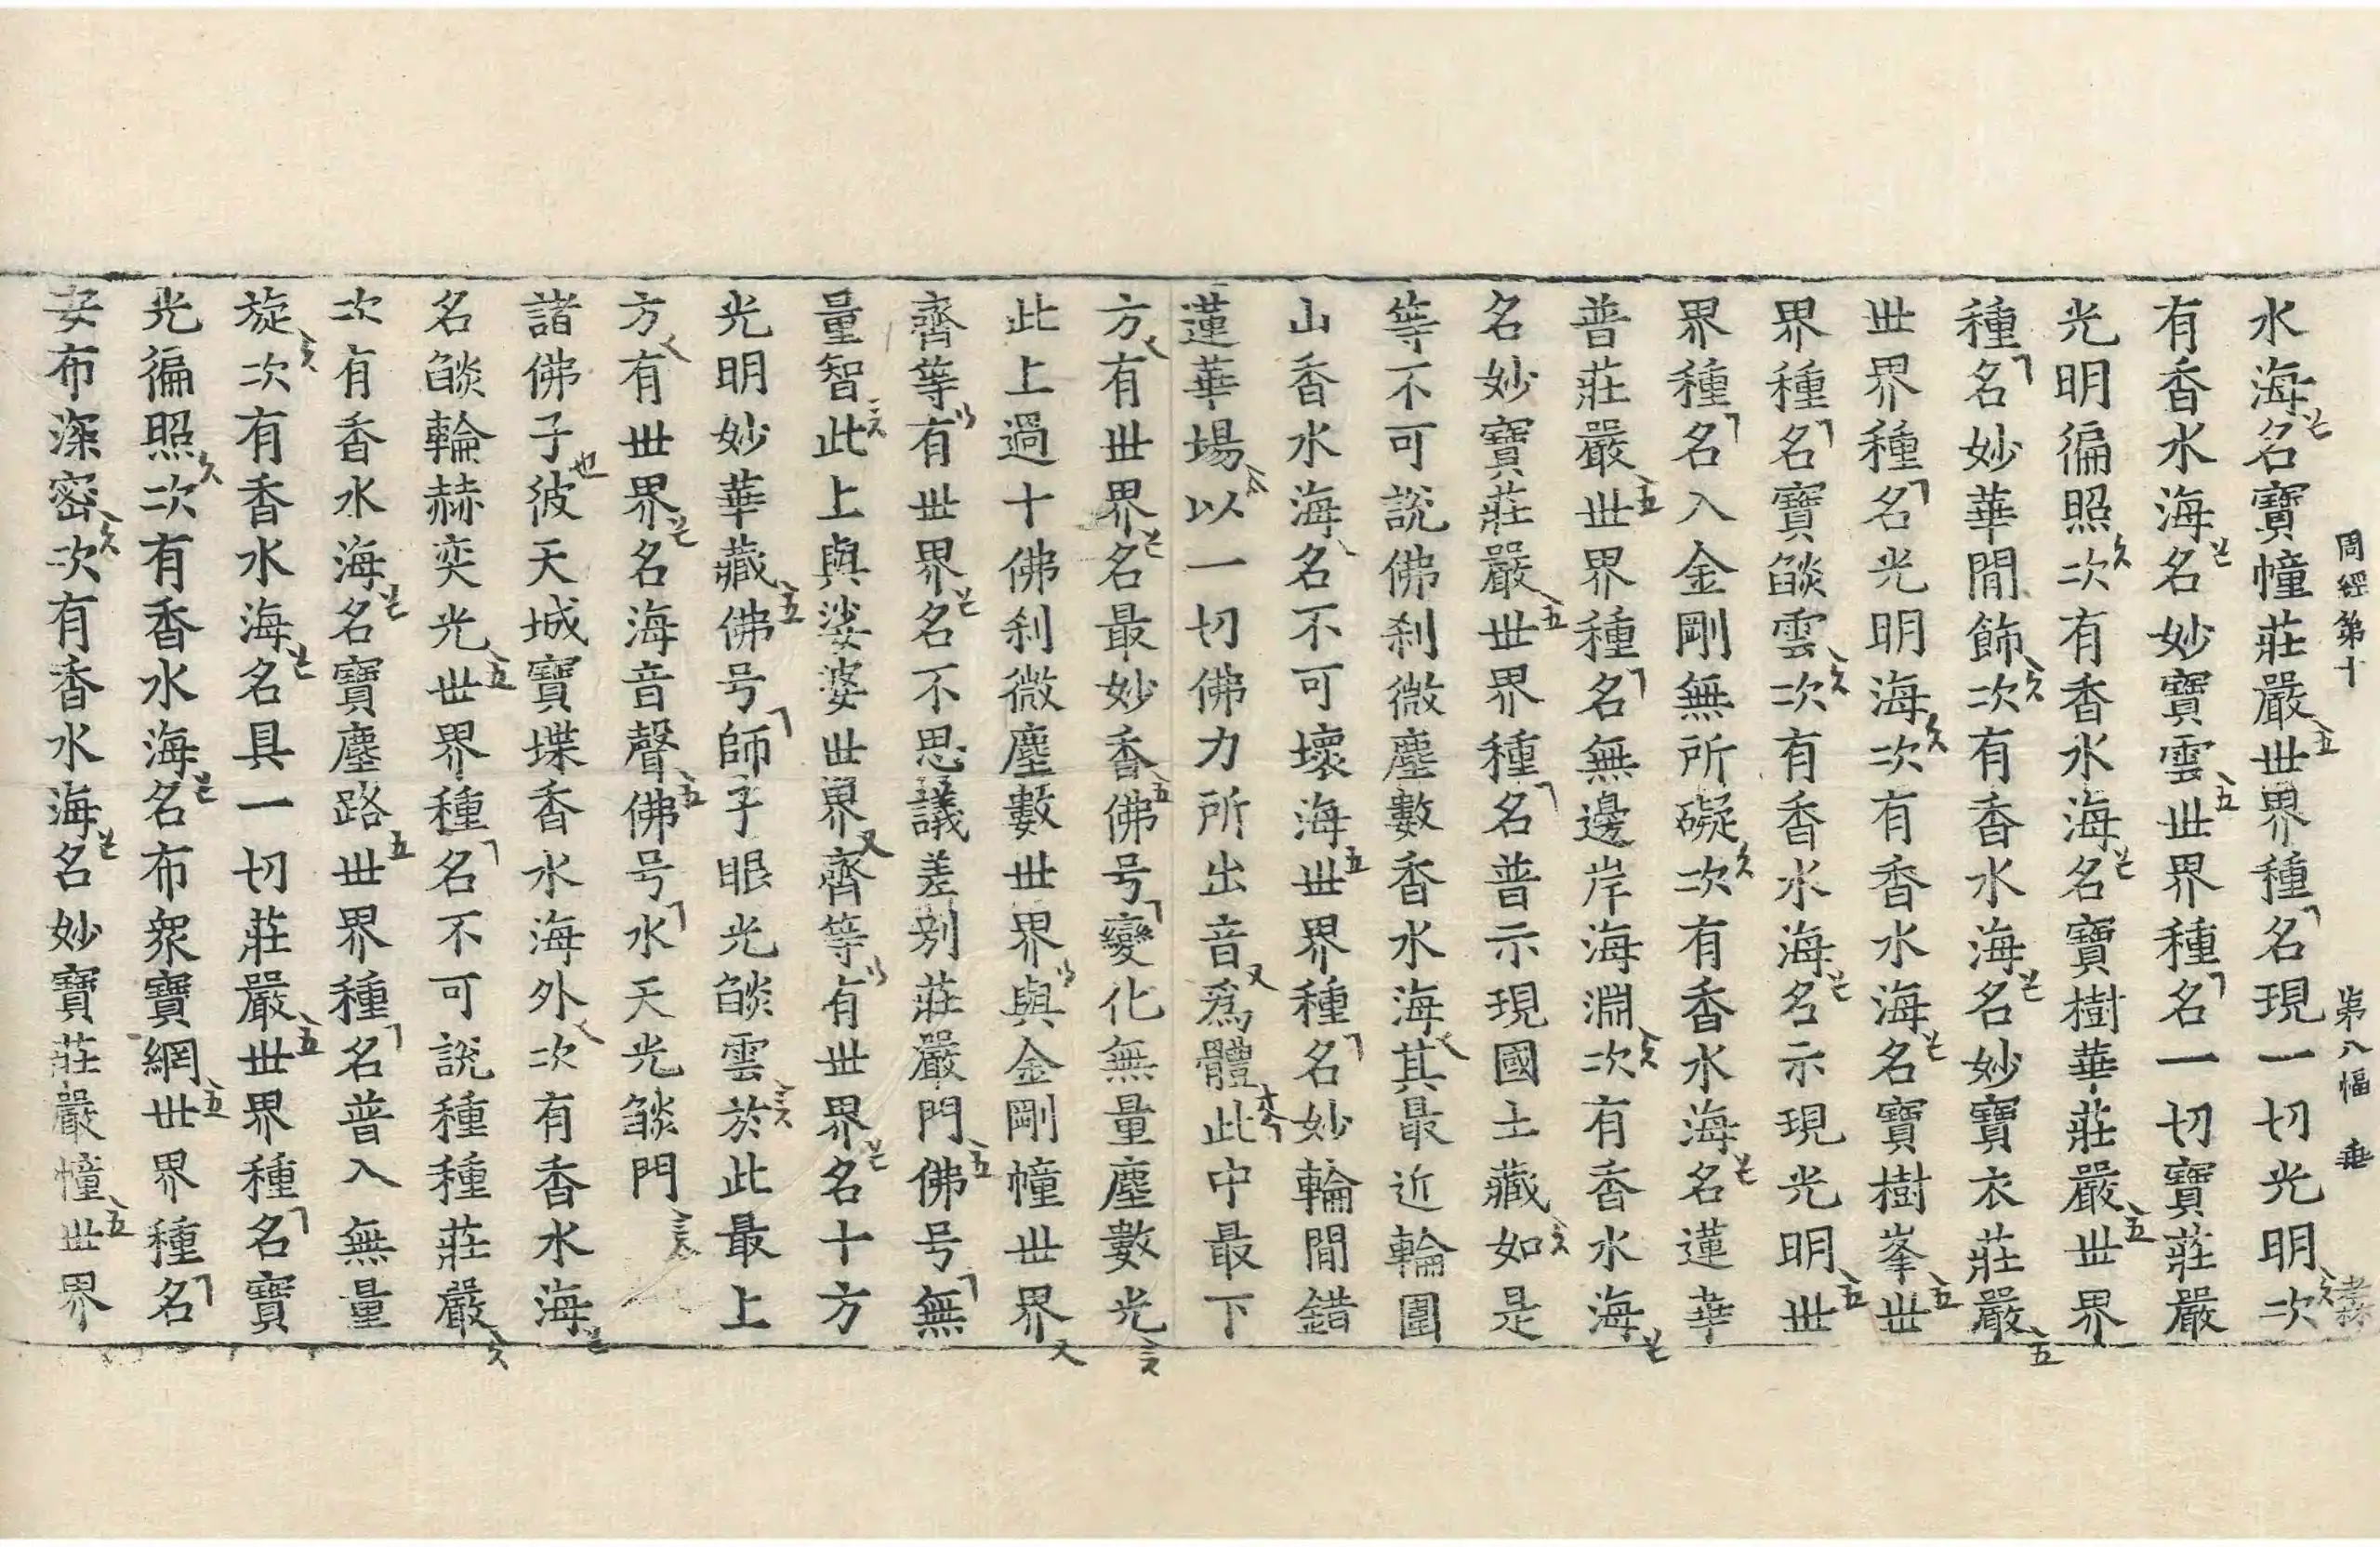 周經第十 第八幅 垂
水海名寶幢莊嚴世界種名現一切光明次
有香水海名妙寶雲世界種名一切寶莊嚴
光明徧照次有香水海名寶樹華莊嚴世界
種名妙華閒飾次有香水海名妙寶衣莊嚴
世界種名光明海次有香水海名寶樹峯世
界種名寶燄雲次有香水海名示現光明世
界種名入金剛無所礙次有香水海名蓮華
普莊嚴世界種名無邊岸海淵次有香水海
名妙寶莊嚴世界種名普示現國土藏如是
等不可說佛刹微塵數香水海其最近輪圍
山香水海名不可壞海世界種名妙輪閒錯
蓮華場以一切佛力所出音爲體此中最下
方有世界名最妙香佛号變化無量塵數光
此上過十佛刹微塵數世界與金剛幢世界
齊等有世界名不思議差别莊嚴門佛号無
量智此上與娑婆世界齊等有世界名十方
光明妙華藏佛号師子眼光燄雲於此最上
方有世界名海音聲佛号水天光燄門
諸佛子彼天城寶堞香水海外次有香水海
名燄輪赫奕光世界種名不可說種種莊嚴
次有香水海名寶塵路世界種名普入無量
旋次有香水海名具一切莊嚴世界種名寶
光徧照次有香水海名布衆寶網世界種名
安布深密次有香水海名妙寶莊嚴幢世界